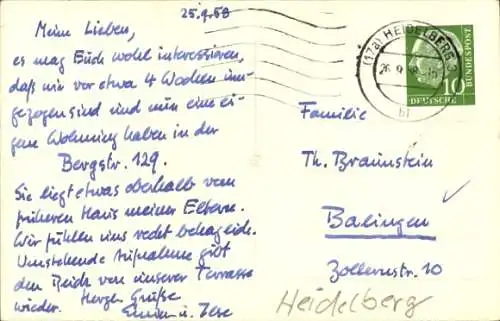 25.9.58
Meine Lieben,
es mag Euch wohl interessieren,
daß wir vor etwa 4 Wochen um-
gezogen sind und nun eine ei-
gene Wohnung haben in der
Bergstr. 129.
Sie liegt etwas oberhalb vom
früheren Haus meiner Eltern.
Wir fühlen uns recht behaglich.
Umstehende Aufnahme gibt
den Blick von unserer Terrasse
wieder. Herzl. Grüße
u. Ilse
(17a) HEIDELBERG 2
26.9.58
bf
10
DEUTSCHE
BUNDESPOST
Familie
Th. Braunstein
Balingen
Zollernstr. 10
Heidelberg